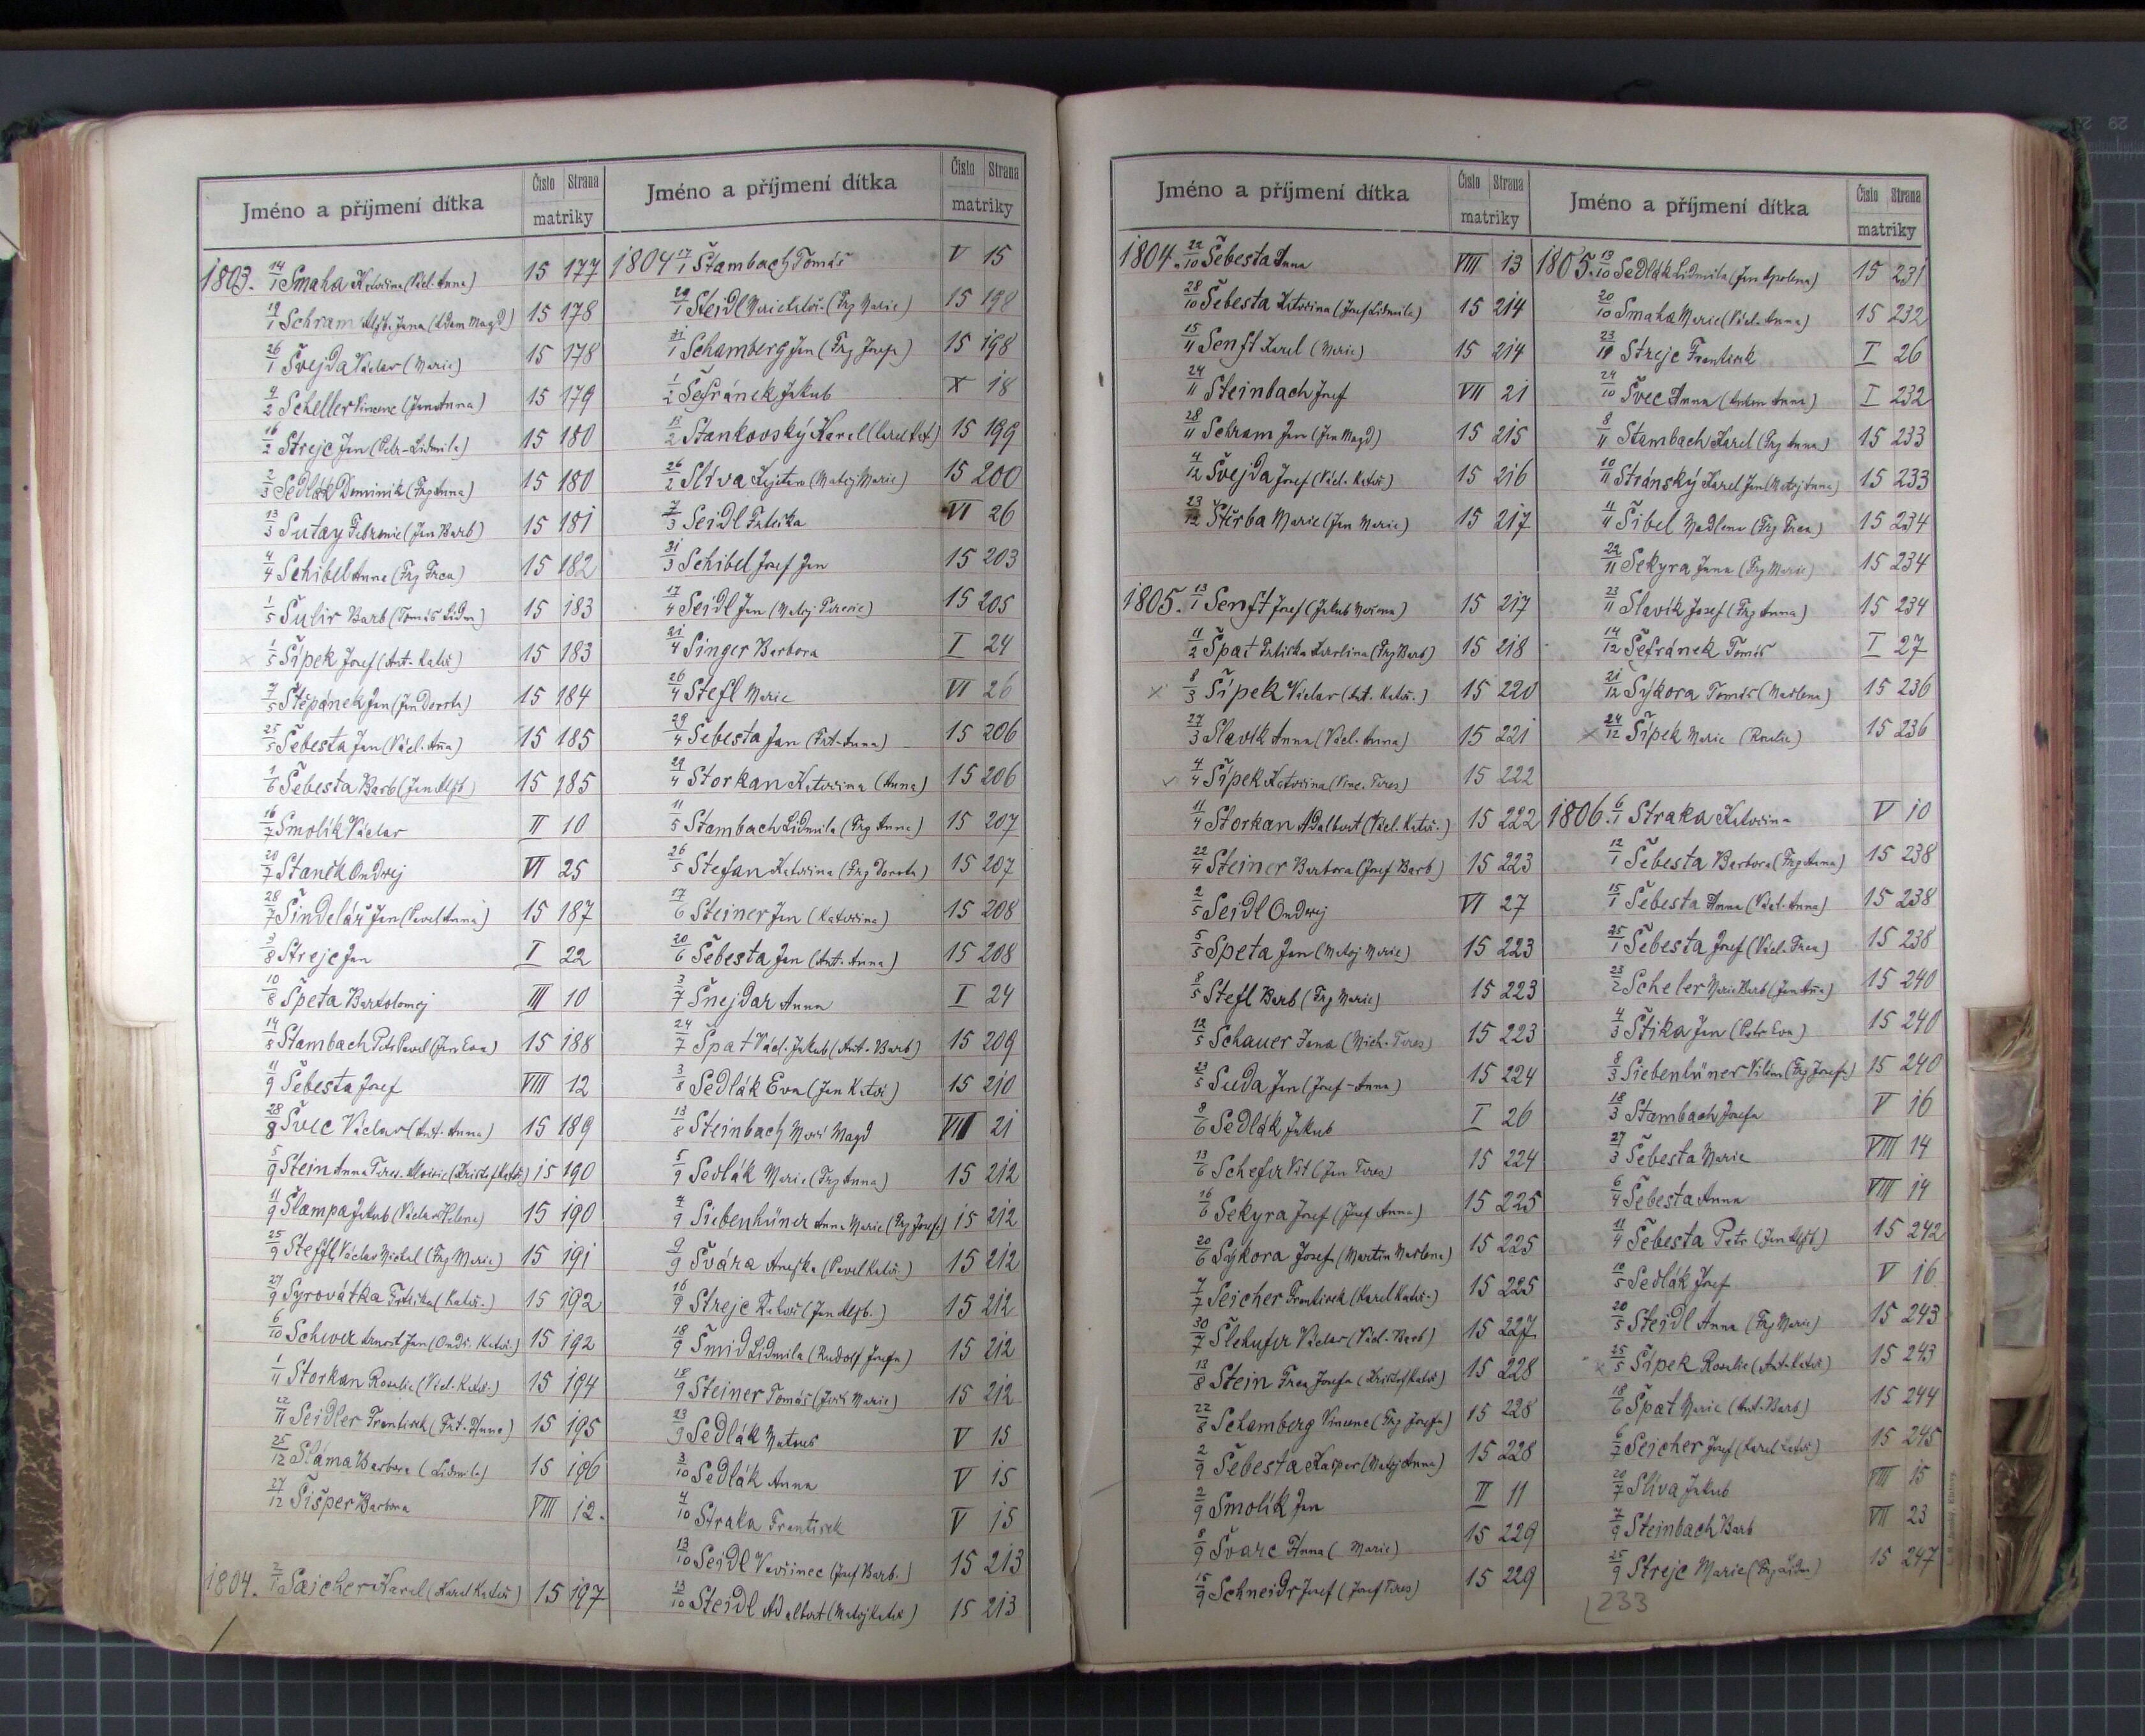 Jméno a příjmení dítka Číslo Strana matriky
1803. 14/1 Smaha Kateřina (Václ. Anna) 15 177
19/1 Schram Alžb. Jana (Adam Magd) 15 178
26/1 Švejda Václav (Marie) 15 178
4/2 Scheller Vincenc (Jan Anna) 15 179
16/2 Strejc Jan (Petr-Lidmila) 15 180
2/3 Sedlák Dominik (Frg Anna) 15 180
13/3 Sutay Febronie (Jan Barb) 15 181
4/4 Schibel Anna (Frg Frca) 15 182
1/5 Šulir Barb (Tomás Lidm) 15 183
1/5 Šípek Josef (Ant. Kateř) 15 183
7/5 Štěpánek Jan (Jan Dorota) 15 184
25/5 Šebesta Jan (Václ. Ana) 15 185
1/6 Šebesta Barb (Jan Alžb) 15 185
16/7 Smolík Václav II 10
20/7 Staněk Ondrej VI 25
28/7 Šindelář Jan (Pavel Anna) 15 187
3/8 Strejc Jan I 22
10/8 Špeta Bartolomej III 10
14/8 Stambach Petr Pavel (Jan Eva) 15 188
11/9 Šebesta Josef VIII 12
28/8 Švec Václav (Ant. Anna) 15 189
5/9 Stein Anna Teres. Aloisie (Kristof Kateř) 15 190
11/9 Šlampa Jakub (Václav Helena) 15 190
25/9 Steffl Václav Michal (Frg Marie) 15 191
27/9 Syrovátka Frtiška (Kateř.) 15 192
6/10 Scheure Arnošt Jan (Ondř. Kateř.) 15 192
1/11 Storkan Rosalie (Václ. Kateř.) 15 194
22/11 Seidler Frantisek (Frt. Anna) 15 195
25/12 Sláma Barbora (Lidmila) 15 196
27/12 Šišper Barbora VIII 12.
1804. 2/1 Saicher Karel (Karel Kateř) 15 197
Jméno a příjmení dítka Číslo Strana matriky
1804 17/1 Štambach Tomás V 15
29/1 Steidl Marie Kateř. (Frg Marie) 15 198
31/1 Schamberg Jan (Frg Josefa) 15 198
1/2 Šefránek Jakub X 18
12/2 Stankovský Karel (Karel Kat) 15 199
26/2 Slíva Kajetan (Matěj Marie) 15 200
7/3 Seidl Frtiska VI 26
31/3 Schibel Josef Jan 15 203
17/4 Seidl Jan (Matěj Terezie) 15 205
21/4 Singer Barbora I 24
26/4 Stefl Marie VI 26
29/4 Šebesta Jan (Frt-Anna) 15 206
29/4 Storkan Kateřina (Anna) 15 206
11/5 Stambach Lidmila (Frg Anna) 15 207
26/5 Stefan Kateřina (Frg Dorota) 15 207
17/6 Steiner Jan (Kateřina) 15 208
20/6 Šebesta Jan (Ant. Anna) 15 208
3/7 Šnejdar Anna I 24
24/7 Špat Václ. Jakub (Ant. Barb) 15 209
3/8 Sedlák Eva (Jan Kateř) 15 210
13/8 Steinbach Magd VII 21
5/9 Sedlák Marie (Frg Anna) 15 212
7/9 Siebenhüner Anna Marie (Frg Josefa) 15 212
9/9 Švára Anežka (Pavel Kateř.) 15 212
16/9 Strejc Kateř (Jan Alžb.) 15 212
18/9 Šmid Lidmila (Rudolf Josefa) 15 212
18/9 Steiner Tomás (Marie) 15 212
23/9 Sedlák Matous V 15
3/10 Sedlák Anna V 15
4/10 Straka Frantisek V 15
13/10 Seidl Vavřinec (Josef Barb.) 15 213
13/10 Steidl Adalbert (Matěj Kateř) 15 213
Jméno a příjmení dítka Číslo Strana matriky
1804. 22/10 Šebesta Anna VIII 13
28/10 Šebesta Kateřina (Josef Lidmila) 15 214
15/11 Senft Karel (Marie) 15 214
24/11 Steinbach Josef VII 21
28/11 Schram Jan (Jan Magd) 15 215
4/12 Švejda Josef (Václ. Kateř) 15 216
23/12 Štěrba Marie (Jan Marie) 15 217
1805. 13/1 Senft Josef (Jakub) 15 217
11/2 Špat Frtiska Karolina (Frg Barb) 15 218
8/3 Šípek Václav (Ant. Kateř.) 15 220
27/3 Slavík Anna (Václ. Anna) 15 221
4/4 Šípek Kateřina (Vinc. Teres) 15 222
11/4 Storkan Adalbert (Václ. Kateř.) 15 222
22/4 Steiner Barbora (Josef Barb) 15 223
2/5 Seidl Ondrej VI 27
5/5 Speta Jan (Matěj Marie) 15 223
8/5 Stefl Barb (Frg Marie) 15 223
12/5 Schauer Jana (Mich. Teres) 15 223
23/5 Suda Jan (Josef-Anna) 15 224
8/6 Sedlák Jakub I 26
13/6 Schefer Vít (Jan Teres) 15 224
16/6 Sekyra Josef (Josef Anna) 15 225
20/6 Sykora Josef (Martin Madlena) 15 225
7/7 Seicher Frantisek (Karel Kateř.) 15 225
30/7 Šlehufer Václav (Václ. Barb) 15 227
13/8 Stein Frca Josefa (Kristof Kateř) 15 228
22/8 Schamberg Vincenc (Frg Josefa) 15 228
2/9 Šebesta Kašpar (Matěj Anna) 15 228
2/9 Smolík Jan II 11
8/9 Švarc Anna (Marie) 15 229
15/9 Schneidr Josef (Josef Teres) 15 229
Jméno a příjmení dítka Číslo Strana matriky
1805. 13/10 Sedlák Lidmila (Jan Apolena) 15 231
20/10 Smaha Marie (Václ. Anna) 15 232
23/10 Strejc Frantisek I 26
24/10 Švec Anna (Anton Anna) I 232
8/11 Stambach Karel (Frg Anna) 15 233
10/11 Stránský Karel Jan (Matěj Anna) 15 233
11/11 Šibel Madlena (Frg Frca) 15 234
22/11 Sekyra Jana (Frg Marie) 15 234
23/11 Slavík Josef (Frg Anna) 15 234
14/12 Šefránek Tomás I 27
21/12 Sýkora Tomás (Madlena) 15 236
24/12 Šípek Marie (Rosalie) 15 236
1806. 6/1 Straka Kateřina V 10
12/1 Šebesta Barbora (Frg Anna) 15 238
15/1 Šebesta Anna (Václ. Anna) 15 238
25/1 Šebesta Josef (Václ. Frca) 15 238
23/2 Scheler Marie Barb (Jan Ana) 15 240
4/3 Štika Jan (Petr Eva) 15 240
8/3 Siebenhüner Vilém (Frg Josefa) 15 240
18/3 Stambach Josefa V 16
27/3 Šebesta Marie VIII 14
6/4 Šebesta Anna VIII 14
11/4 Šebesta Petr (Jan Alžb) 15 242
10/5 Sedlák Josef V 16
20/5 Steidl Anna (Frg Marie) 15 243
25/5 Šípek Rosalie (Ant. Kateř) 15 243
18/6 Špat Marie (Ant. Barb) 15 244
6/7 Seicher Josef (Karel Kateř) 15 245
20/7 Slíva Jakub VIII 15
7/9 Steinbach Barb VII 23
25/9 Strejc Marie (Frg Lidm) 15 247
233